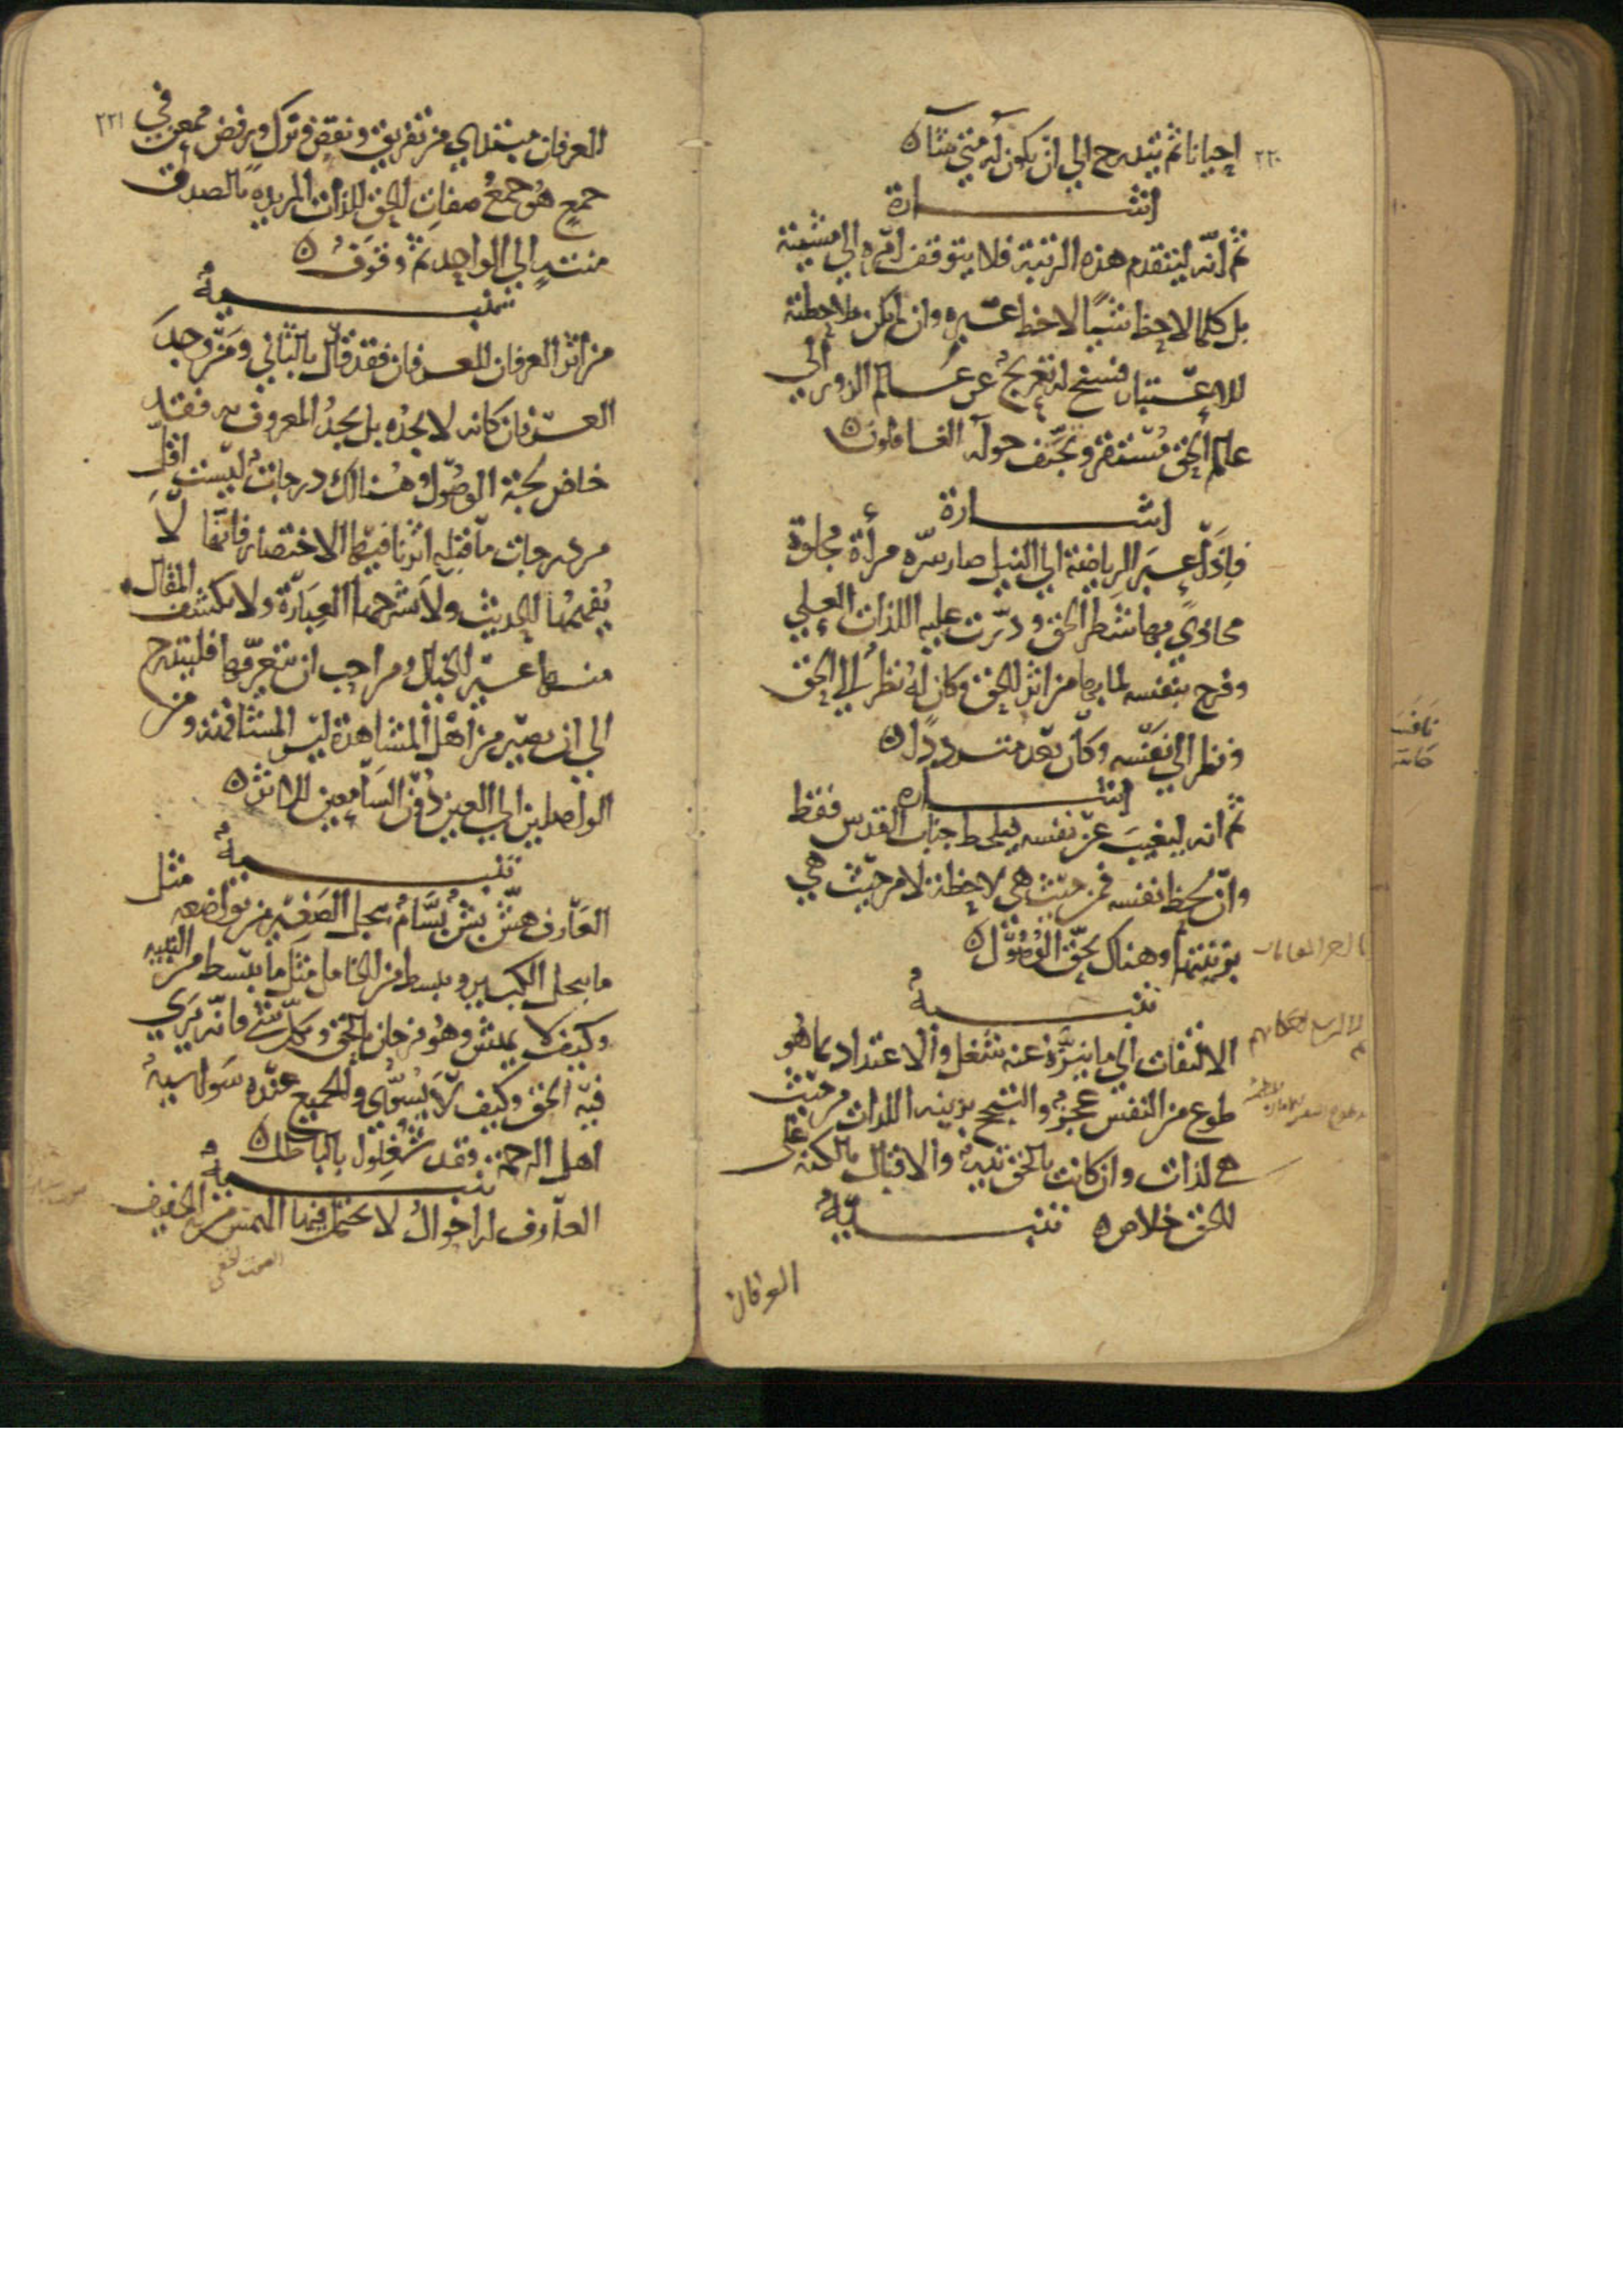 ٢٢٠
احيانا ثم يتدرج الى ان يكون له متى شاء
اشارة
ثم انه ليتقدم هذه الرتبة فلا يتوقف امره الى مشيئة
بل كلما لاحظ شيئا لاحظ غيره وان لم يكن ملاحظته
للاعتبار فسنح له تعريج عن عالم الزور الى
عالم الحق مستقر وتحتف حوله الغافلون
اشارة
فاذا عبر الرياضة الى النيل صار سره مرأة مجلوة
محاذي بها شطر الحق ودرت عليه اللذات العلى
وفرح بنفسه لما بها من اثر الحق وكان له نظر الى الحق
ونظر الى نفسه وكان بعد مترددا
اشاره
ثم انه ليغيب عن نفسه فيلحظ جناب القدس فقط
وان لحظ نفسه فمن حيث هي لاحظة لا من حيث هي
بزينتها وهناك يحق الوصول
تنبيه
الالتفات الى ما تنزه عنه شغل والاعتداد بما هو
طوع من النفس عجز والتبجح بزينه اللذات من حيث
هي لذات وان كانت بالحق تيه والاقبال بالكنه على
الحق خلاص تنبيه
العرفان
٢٢١
العرفان مبتدي من تفريق ونقض وترك ورفض ممعن في
جمع هو جمع صفات الحق للذات المريده بالصدق
منته الى الواحد ثم وقوف
تنبيه
من اثر العرفان للعرفان فقد قال بالثاني ومن وجد
العرفان كانه لا يجده بل يجد المعروف به فقد
خاض لجة الوصول وهنالك درجات ليست اقل
من درجات ما قبله اثرنا فيها الاختصار فانها لا
يفهمها الحديث ولا تشرحها العبارة ولا يكشف المقال
منها غير الخيال ومن احب ان يتعرفها فليتدرج
الى ان يصير من اهل المشاهدة ليس المشافهة ومن
الواصلين الى العين دون السامعين للاثر
تنبيه
العارف هش بش بسام يبجل الصغير من تواضعه مثل
ما يبجل الكبير وينبسط من الخامل مثل ما ينبسط من النبيه
وكيف لا يهش وهو فرحان بالحق وبكل شئ فانه يرى
فيه الحق وكيف لا يسوي والجميع عنده سواسية
اهل الرحمة وقد شغلوا بالباطل
تنبيه
العارف له احوال لا يحتمل فيها الهمس من الحفيف